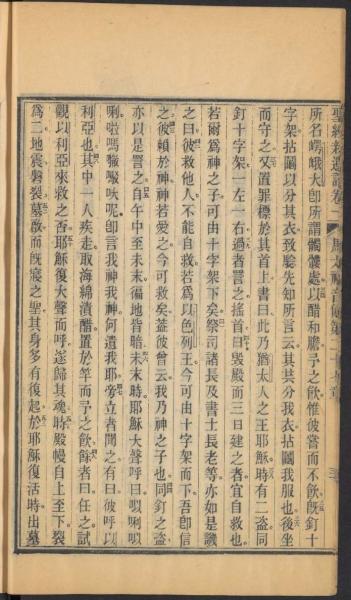 所名嶧峨大卽所謂髑髏處以醋和膽予之飲惟彼嘗而不飲旣釘十
字架拈鬮以分其衣致騐先知所言云其共分我衣拈鬮我服也後坐
而守之又置罪標於其首上書曰此乃猶太人之王耶穌時有二盜同
釘十字架一左一右過者詈之搖首曰毀殿而三日建之者宜自救也
若爾爲神之子可由十字架下矣祭司諸長及書士長老等亦如是譏
之曰彼救他人不能自救若爲以色列王今可由十字架而下吾卽信
之彼賴於神神若愛之今可救矣葢彼曾云我乃神之子也同釘之盜
亦以是詈之自午中至未末徧地皆暗未末時耶穌大聲呼曰
卽言我神我神何遺我耶旁立者聞之有曰彼呼以
利亞也其中一人疾走取海綿漬醋置於竿而予之飲餘者曰任之試
觀以利亞來救之否耶穌復大聲而呼遂歸其魂時殿幔自上至下裂
爲二地震磐裂墓啟而旣寢之聖其身多有復起於耶穌復活時出墓